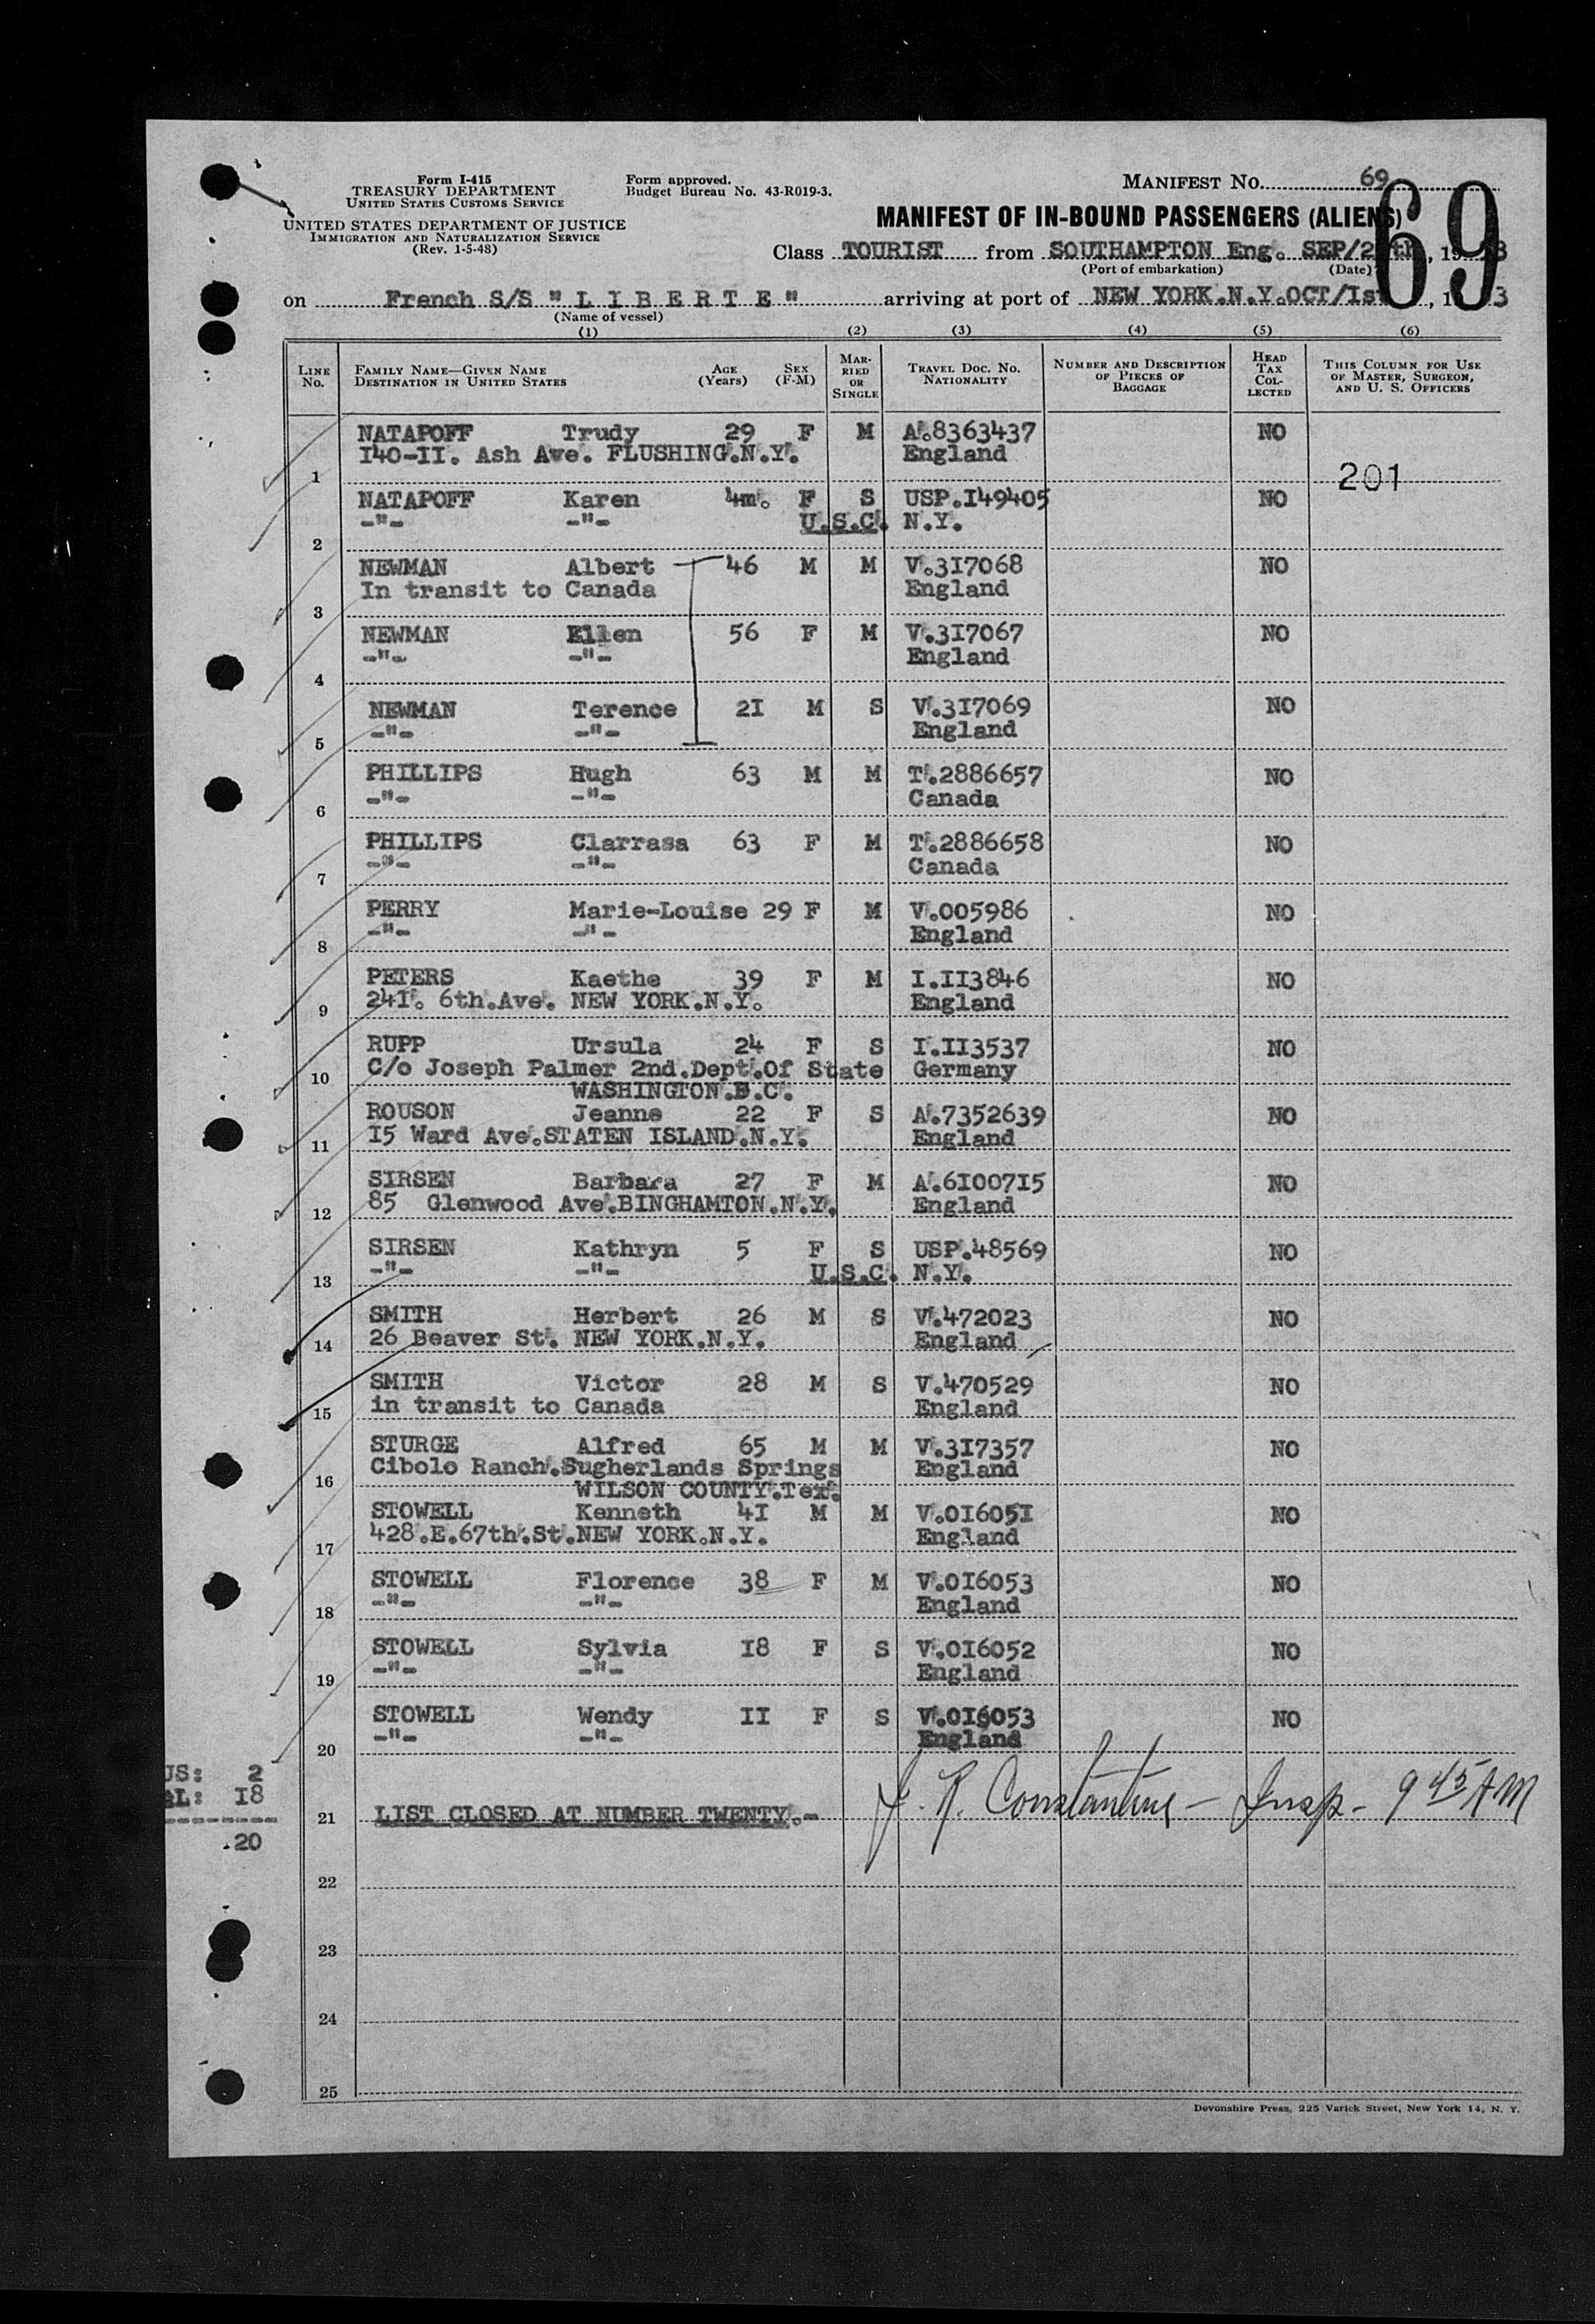 Form I-415
TREASURY DEPARTMENT
UNITED STATES CUSTOMS SERVICE
UNITED STATES DEPARTMENT OF JUSTICE
IMMIGRATION AND NATURALIZATION SERVICE
(Rev. 1-5-48)
Form approved.
Budget Bureau No. 43-R019-3.
MANIFEST No. 69
69
MANIFEST OF IN-BOUND PASSENGERS (ALIENS)
Class TOURIST from SOUTHAMPTON Eng. SEP/2 th, 19 3
(Port of embarkation) (Date)
on French S/S " L I B E R T E " arriving at port of NEW YORK.N.Y.OCT/Ist , 1 3
(Name of vessel)
(1) (2) (3) (4) (5) (6)
LINE No. FAMILY NAME—GIVEN NAME DESTINATION IN UNITED STATES AGE (Years) SEX (F-M) MARRIED OR SINGLE TRAVEL DOC. NO. NATIONALITY NUMBER AND DESCRIPTION OF PIECES OF BAGGAGE HEAD TAX COLLECTED THIS COLUMN FOR USE OF MASTER, SURGEON, AND U. S. OFFICERS
NATAPOFF Trudy 29 F M A.8363437 NO
140-II. Ash Ave. FLUSHING.N.Y. England
1 201
NATAPOFF Karen 4m. F S USP.I49405 NO
-"- -"- U.S.C. N.Y.
2
NEWMAN Albert 46 M M V.3I7068 NO
In transit to Canada England
3
NEWMAN Ellen 56 F M V.3I7067 NO
-"- -"- England
4
NEWMAN Terence 2I M S V.3I7069 NO
-"- -"- England
5
PHILLIPS Hugh 63 M M T.2886657 NO
-"- -"- Canada
6
PHILLIPS Clarrasa 63 F M T.2886658 NO
-"- -"- Canada
7
PERRY Marie-Louise 29 F M V.005986 NO
-"- -"- England
8
PETERS Kaethe 39 F M I.II3846 NO
24I. 6th.Ave. NEW YORK.N.Y. England
9
RUPP Ursula 24 F S I.II3537 NO
C/o Joseph Palmer 2nd.Dept.Of State Germany
10 WASHINGTON.D.C.
ROUSON Jeanne 22 F S A.7352639 NO
I5 Ward Ave.STATEN ISLAND.N.Y. England
11
SIRSEN Barbara 27 F M A.6I007I5 NO
85 Glenwood Ave.BINGHAMTON.N.Y. England
12
SIRSEN Kathryn 5 F S USP.48569 NO
-"- -"- U.S.C. N.Y.
13
SMITH Herbert 26 M S V.472023 NO
26 Beaver St. NEW YORK.N.Y. England
14
SMITH Victor 28 M S V.470529 NO
in transit to Canada England
15
STURGE Alfred 65 M M V.3I7357 NO
Cibolo Ranch.Sugherlands Springs England
16 WILSON COUNTY.Tex.
STOWELL Kenneth 4I M M V.0I605I NO
428.E.67th.St.NEW YORK.N.Y. England
17
STOWELL Florence 38 F M V.0I6053 NO
-"- -"- England
18
STOWELL Sylvia I8 F S V.0I6052 NO
-"- -"- England
19
STOWELL Wendy II F S V.0I6053 NO
-"- -"- England
20
US: 2
AL: I8
--------
.20
21 LIST CLOSED AT NUMBER TWENTY.- J. R. Constantine - Insp - 9 45 AM
22
23
24
25
Devonshire Press, 225 Varick Street, New York 14, N. Y.